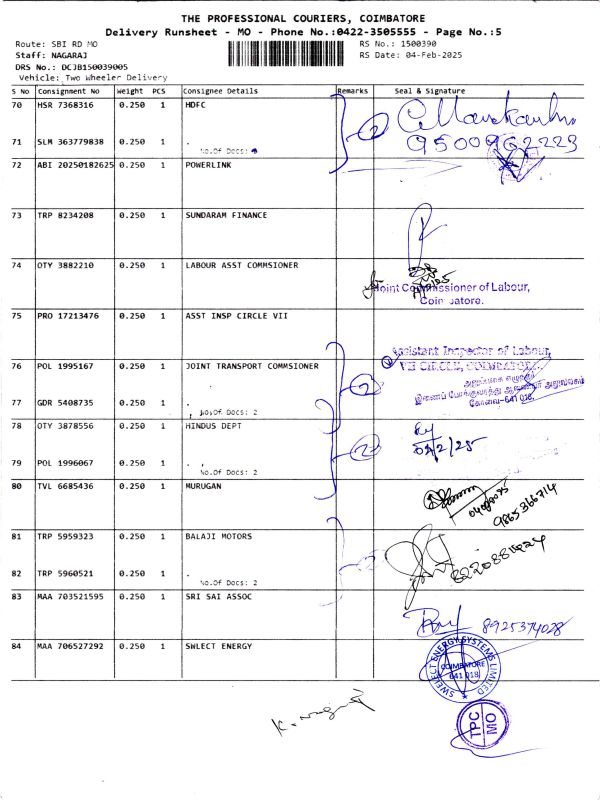 THE PROFESSIONAL COURIERS, COIMBATORE
Delivery Runsheet - MO - Phone No.:0422-3505555 - Page No.:5
Route: SBI RD MO RS No.: 1500390
Staff: NAGARAJ RS Date: 04-Feb-2025
DRS No.: DCJB150039005
Vehicle: Two Wheeler Delivery
S No Consignment No Weight PCS Consignee Details Remarks Seal & Signature
70 HSR 7368316 0.250 1 HDFC
2
71 SLM 363779838 0.250 1 .
9500962223
No.Of Docs:
72 ABI 20250182625 0.250 1 POWERLINK
73 TRP 8234208 0.250 1 SUNDARAM FINANCE
74 OTY 3882210 0.250 1 LABOUR ASST COMMSIONER
Joint Commissioner of Labour,
Coimbatore.
75 PRO 17213476 0.250 1 ASST INSP CIRCLE VII
Assistant Inspector of Labour,
VII CIRCLE, COIMBATORE.
76 POL 1995167 0.250 1 JOINT TRANSPORT COMMSIONER
2
77 GDR 5408735 0.250 1 .
இணைப் போக்குவரத்து ஆணையர் அலுவலகம்
கோவை-641 018.
No.Of Docs: 2
78 OTY 3878556 0.250 1 HINDUS DEPT
2
79 POL 1996067 0.250 1 .
No.Of Docs: 2
80 TVL 6685436 0.250 1 MURUGAN
9865366714
81 TRP 5959323 0.250 1 BALAJI MOTORS
2
82 TRP 5960521 0.250 1 .
No.Of Docs: 2
83 MAA 703521595 0.250 1 SRI SAI ASSOC
8925374028
84 MAA 706527292 0.250 1 SWLECT ENERGY
SWELECT ENERGY SYSTEMS LIMITED
COIMBATORE
641 018
TPC
MO